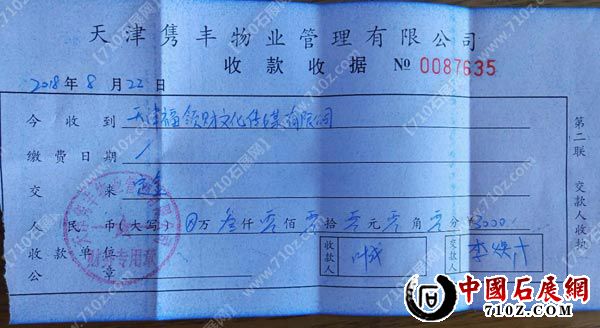 天津隽丰物业管理有限公司
收款收据 № 0087635
2018年8月22日
今收到 天津福领财文化传媒有限公司
缴费日期 /
交来 定金
人民币(大写) ⊗万叁仟零佰零拾零元零角零分 ¥3000.
收款单位公章
收款人
交款人 李
第二联 交款人收执
财务专用章
【710石展网】
www.710z.com
中國石展網
www.710Z.com